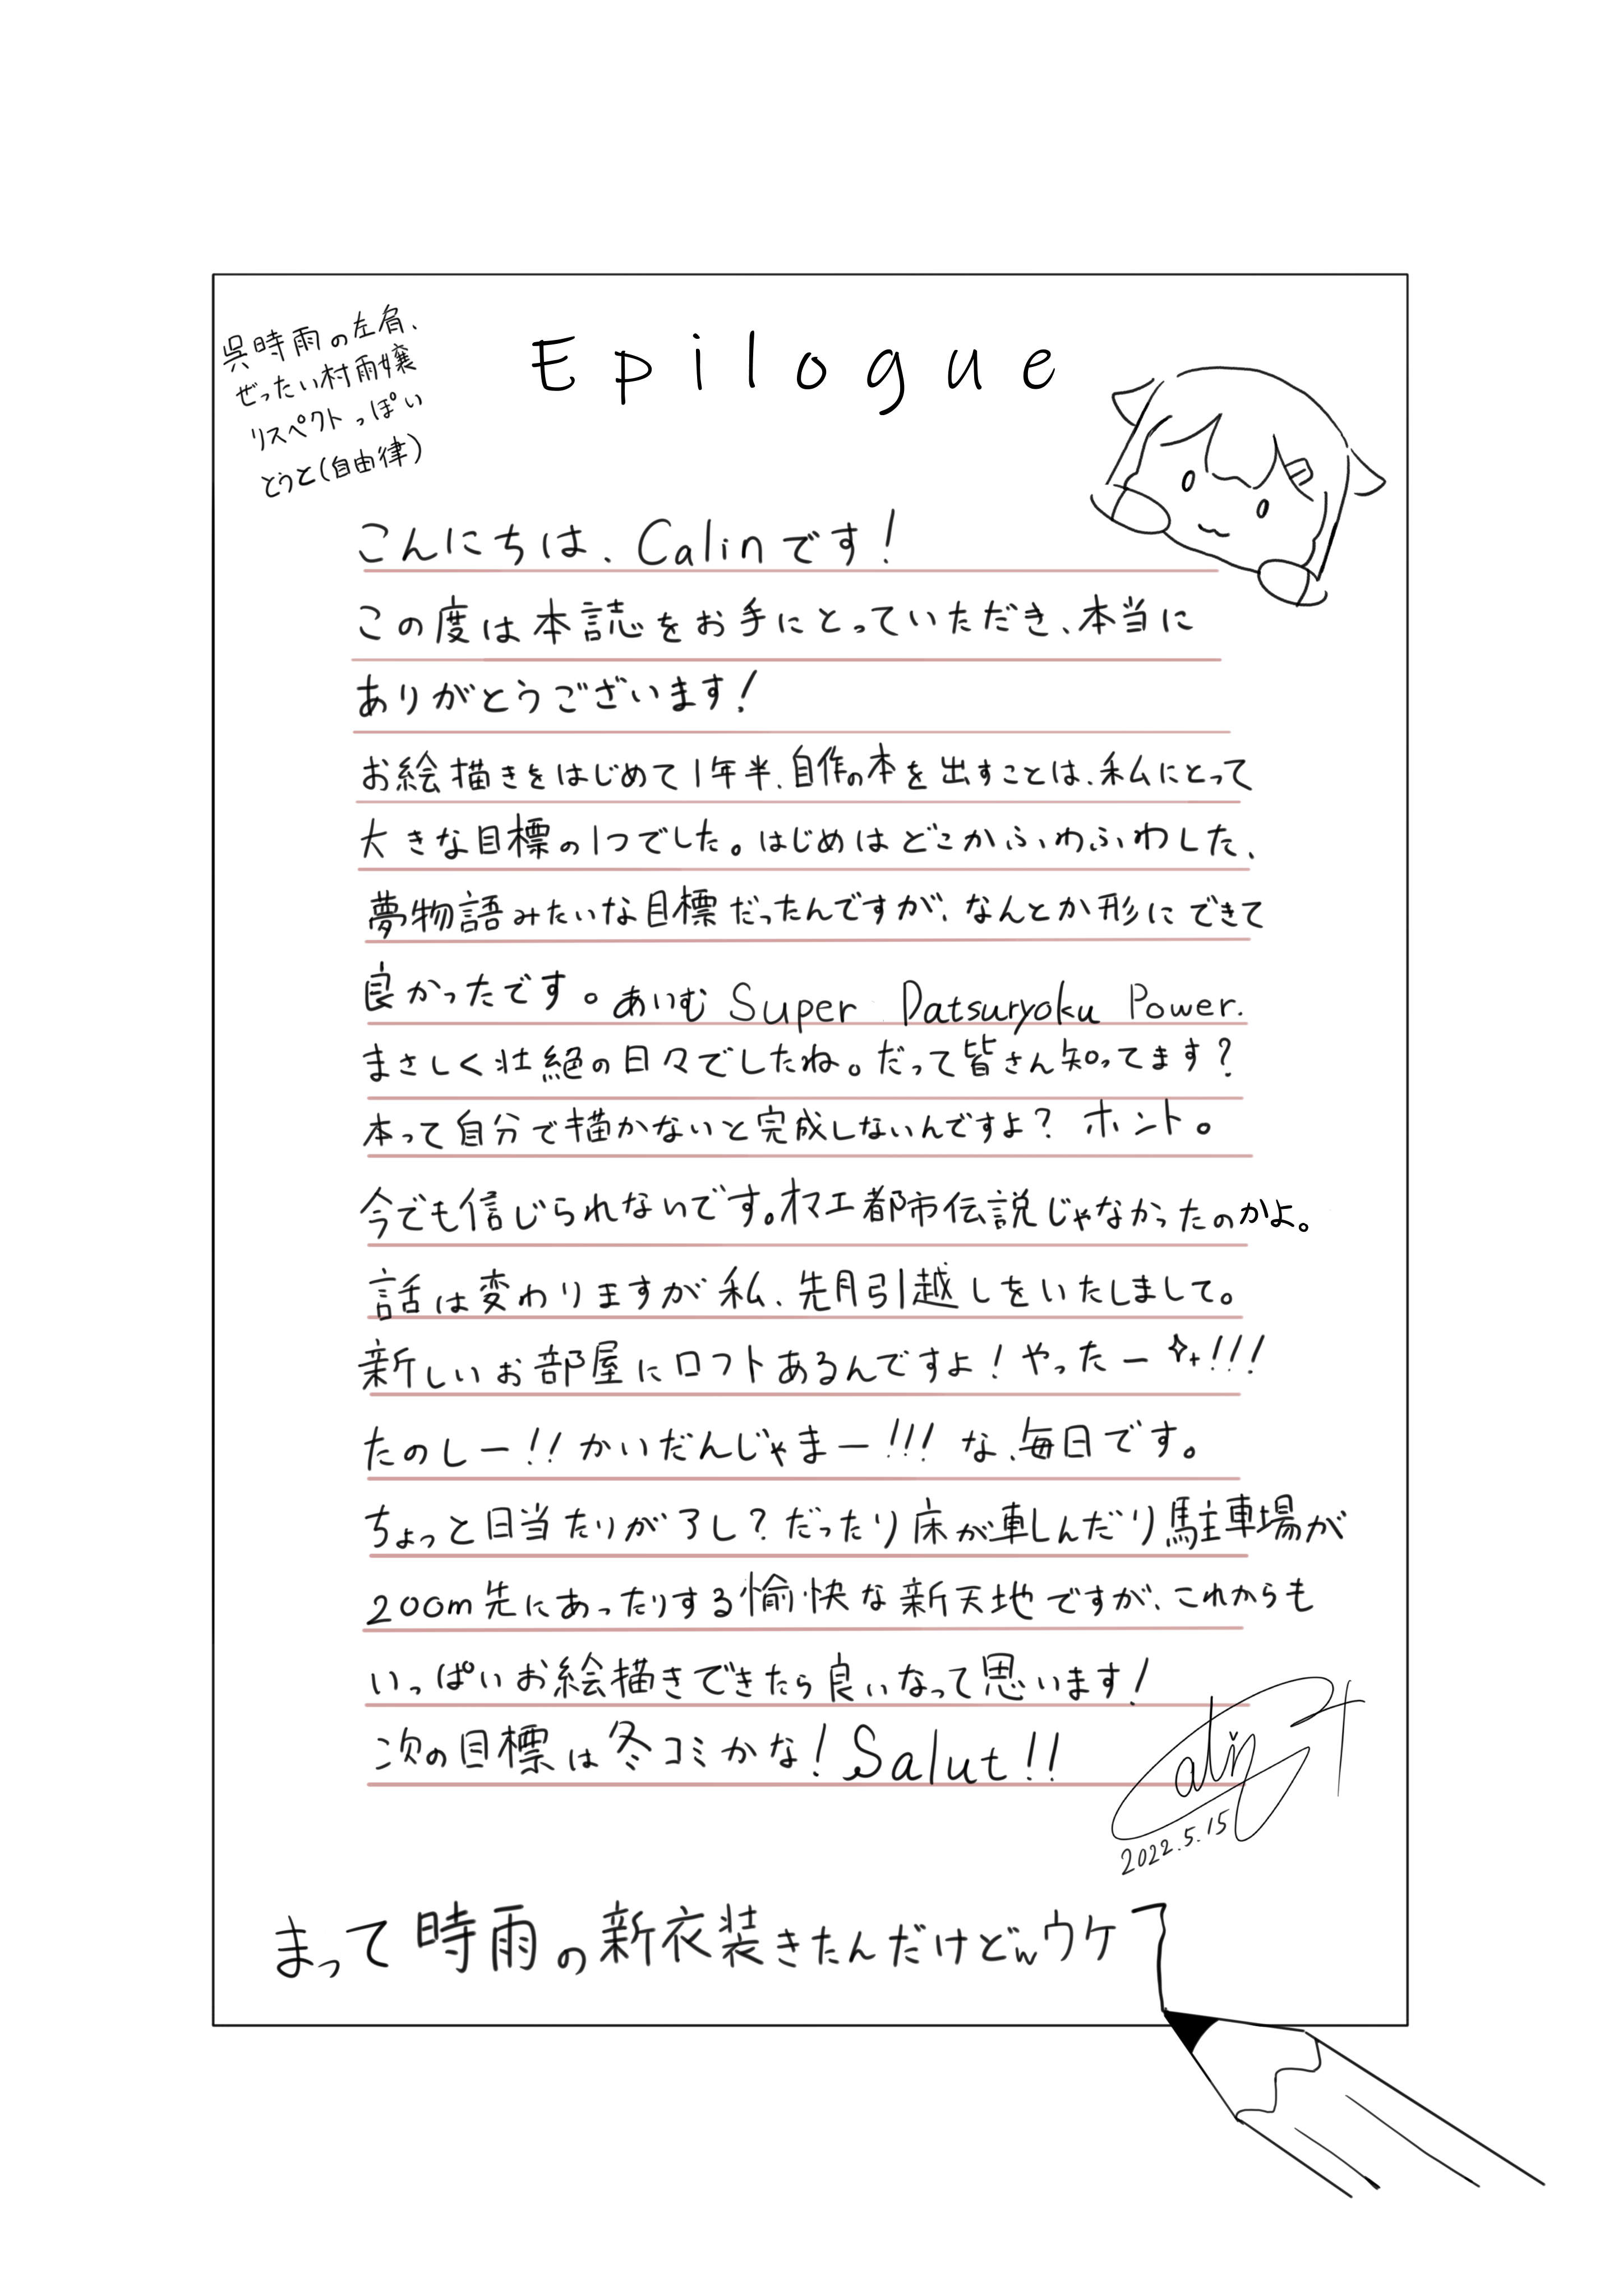 Epilogue
呉時雨の左肩、
ぜったい村雨嬢
リスペクトっぽい
とうと(自由律)
こんにちは、Calinです!
この度は本誌をお手にとっていただき、本当に
ありがとうございます!
お絵描きをはじめて1年半、自作の本を出すことは、私にとって
大きな目標の1つでした。はじめはどこかふわふわした、
夢物語みたいな目標だったんですが、なんとか形にできて
良かったです。あいむ Super Datsuryoku Power.
まさしく壮絶の日々でしたね。だって皆さん知ってます?
本って自分で描かないと完成しないんですよ? ホント。
今でも信じられないです。オマエ都市伝説じゃなかったのかよ。
話は変わりますが私、先月引越しをいたしまして。
新しいお部屋にロフトあるんですよ!やったー✨!!!
たのしー!!かいだんじゃまー!!!な、毎日です。
ちょっと日当たりが了し?だったり床が軋んだり駐車場が
200m先にあったりする愉快な新天地ですが、これからも
いっぱいお絵描きできたら良いなって思います!
次の目標は冬コミかな!Salut!!
Calin
2022.5.15
まって時雨の新衣装きたんだけどwウケ